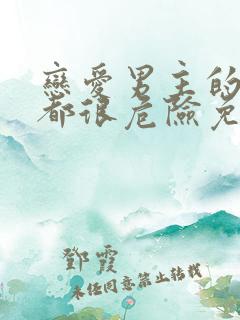 戀愛男主的
都很危險免
鄧霞
未经同意禁止转载